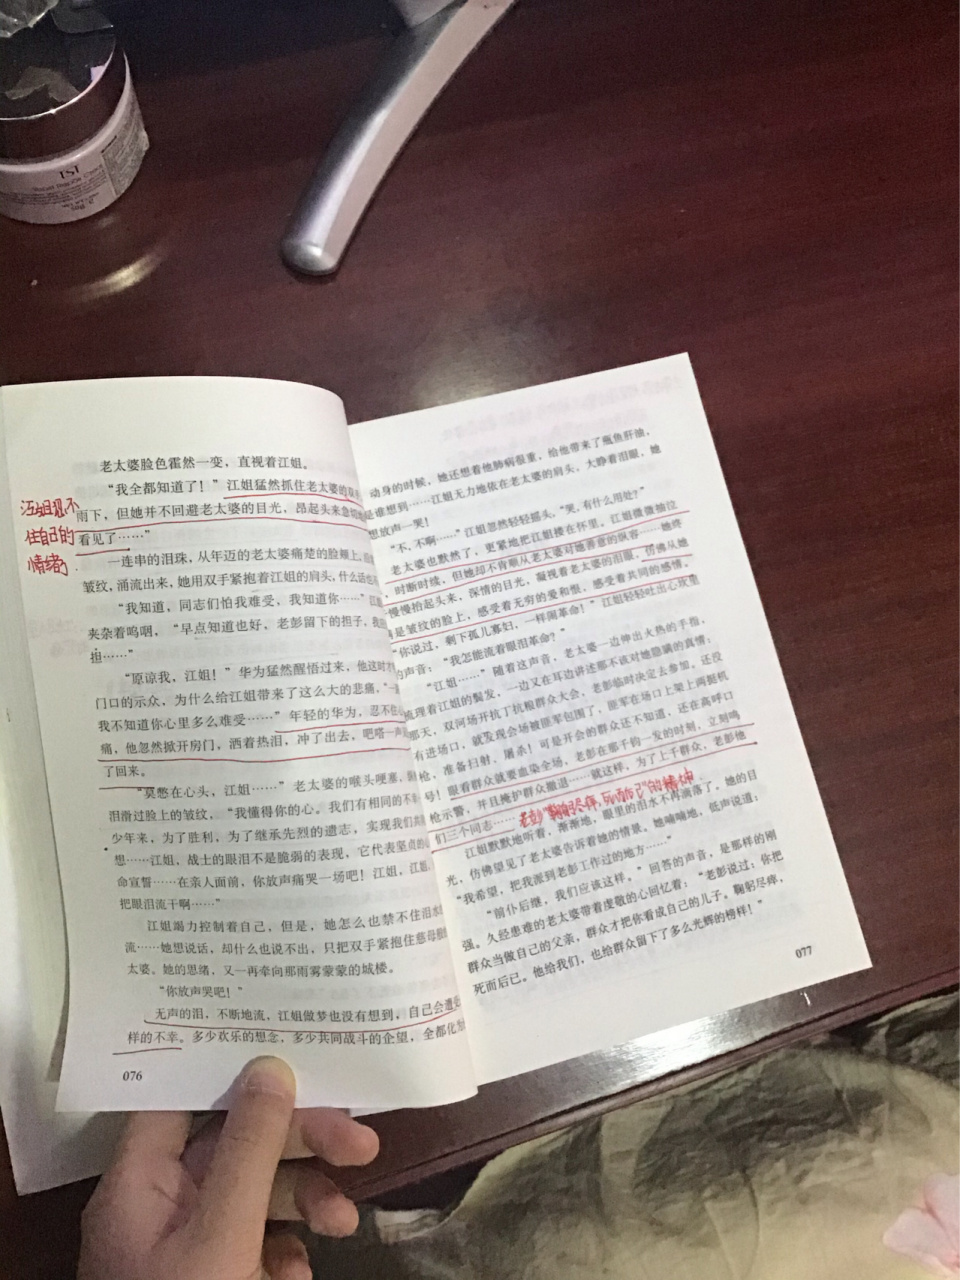 老太婆脸色霍然一变，直视着江姐。
“我全都知道了！”江姐猛然抓住老太婆的双
雨下，但她并不回避老太婆的目光，昂起头来急切地
看见了……”
一连串的泪珠，从年迈的老太婆痛楚的脸颊上，
皱纹，涌流出来，她用双手紧抱着江姐的肩头，什么话也
“我知道，同志们怕我难受，我知道你……”
夹杂着呜咽，“早点知道也好，老彭留下的担子，我
担……”
“原谅我，江姐！”华为猛然醒悟过来，他这时才
门口的示众，为什么给江姐带来了这么大的悲痛，“一
我不知道你心里多么难受……”年轻的华为，忍不住
痛，他忽然掀开房门，洒着热泪，冲了出去，吧嗒一声
了回来。
“莫憋在心头，江姐……”老太婆的喉头哽塞，
泪滑过脸上的皱纹，“我懂得你的心。我们有相同的不
少年来，为了胜利，为了继承先烈的遗志，实现我们
想……江姐，战士的眼泪不是脆弱的表现，它代表坚贞的
命宣誓……在亲人面前，你放声痛哭一场吧！江姐，江姐，
把眼泪流干啊……”
江姐竭力控制着自己，但是，她怎么也禁不住泪水
流……她想说话，却什么也说不出，只把双手紧抱住慈母般
太婆。她的思绪，又一再牵向那雨雾蒙蒙的城楼。
“你放声哭吧！”
无声的泪，不断地流，江姐做梦也没有想到，自己会遭
样的不幸。多少欢乐的想念，多少共同战斗的企望，全都化为
076
江姐忍不
住自己的
情绪了.
动身的时候，她还想着他肺病很重，给他带来了瓶鱼肝油，
是谁想到……江姐无力地依在老太婆的肩头，大睁着泪眼，她
想放声一哭！
“不，不啊……”江姐忽然轻轻摇头，“哭，有什么用处？”
老太婆也默然了，更紧地把江姐搂在怀里。江姐微微抽泣
，时断时续，但她却不肯顺从老太婆对她善意的纵容……她终
慢慢抬起头来，深情的目光，凝视着老太婆的泪眼，仿佛从她
是皱纹的脸上，感受着无穷的爱和恨，感受着共同的感情。
“你说过，剩下孤儿寡妇，一样闹革命！”江姐轻轻吐出心坎里
的声音：“我怎能流着眼泪革命？”
“江姐……”随着这声音，老太婆一边伸出火热的手指，
梳理着江姐的鬓发，一边又在耳边讲述那不该对她隐瞒的真情：
那天，双河场开抗丁抗粮群众大会，老彭临时决定去参加，还没
有进场口，就发现会场被匪军包围了，匪军在场口上架上两挺机
枪，准备扫射、屠杀！可是开会的群众还不知道，还在高呼口
号！眼看群众就要血染全场，老彭在那千钧一发的时刻，立刻鸣
枪示警，并且掩护群众撤退……就这样，为了上千群众，老彭他
们三个同志……
老彭“鞠躬尽瘁,死而后已”的精神
江姐默默地听着，渐渐地，眼里的泪水不再滴落了。她的目
光，仿佛望见了老太婆告诉着她的情景。她喃喃地，低声说道：
“我希望，把我派到老彭工作过的地方……”
“前仆后继，我们应该这样。”回答的声音，是那样的刚
强。久经患难的老太婆带着虔敬的心回忆着：“老彭说过：你把
群众当做自己的父亲，群众才把你看成自己的儿子。鞠躬尽瘁，
死而后已。他给我们，也给群众留下了多么光辉的榜样！”
077